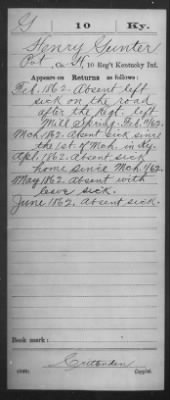 G 10 Ky.
Henry Gunter
Pvt., Co. H, 10 Reg't Kentucky Inf.
Appears on Returns as follows:
Feb. 1862. Absent left
sick on the road
after the Regt. left
Mill Spring. Feb. 11/62.
Mch. 1862. Absent sick since
the 1st of Mch. in Ky.
Apl. 1862. Absent sick
home since Mch. 1/62.
May 1862. Absent with
leave sick.
June 1862. Absent sick.
Book mark:
Crittenden
Copyist.